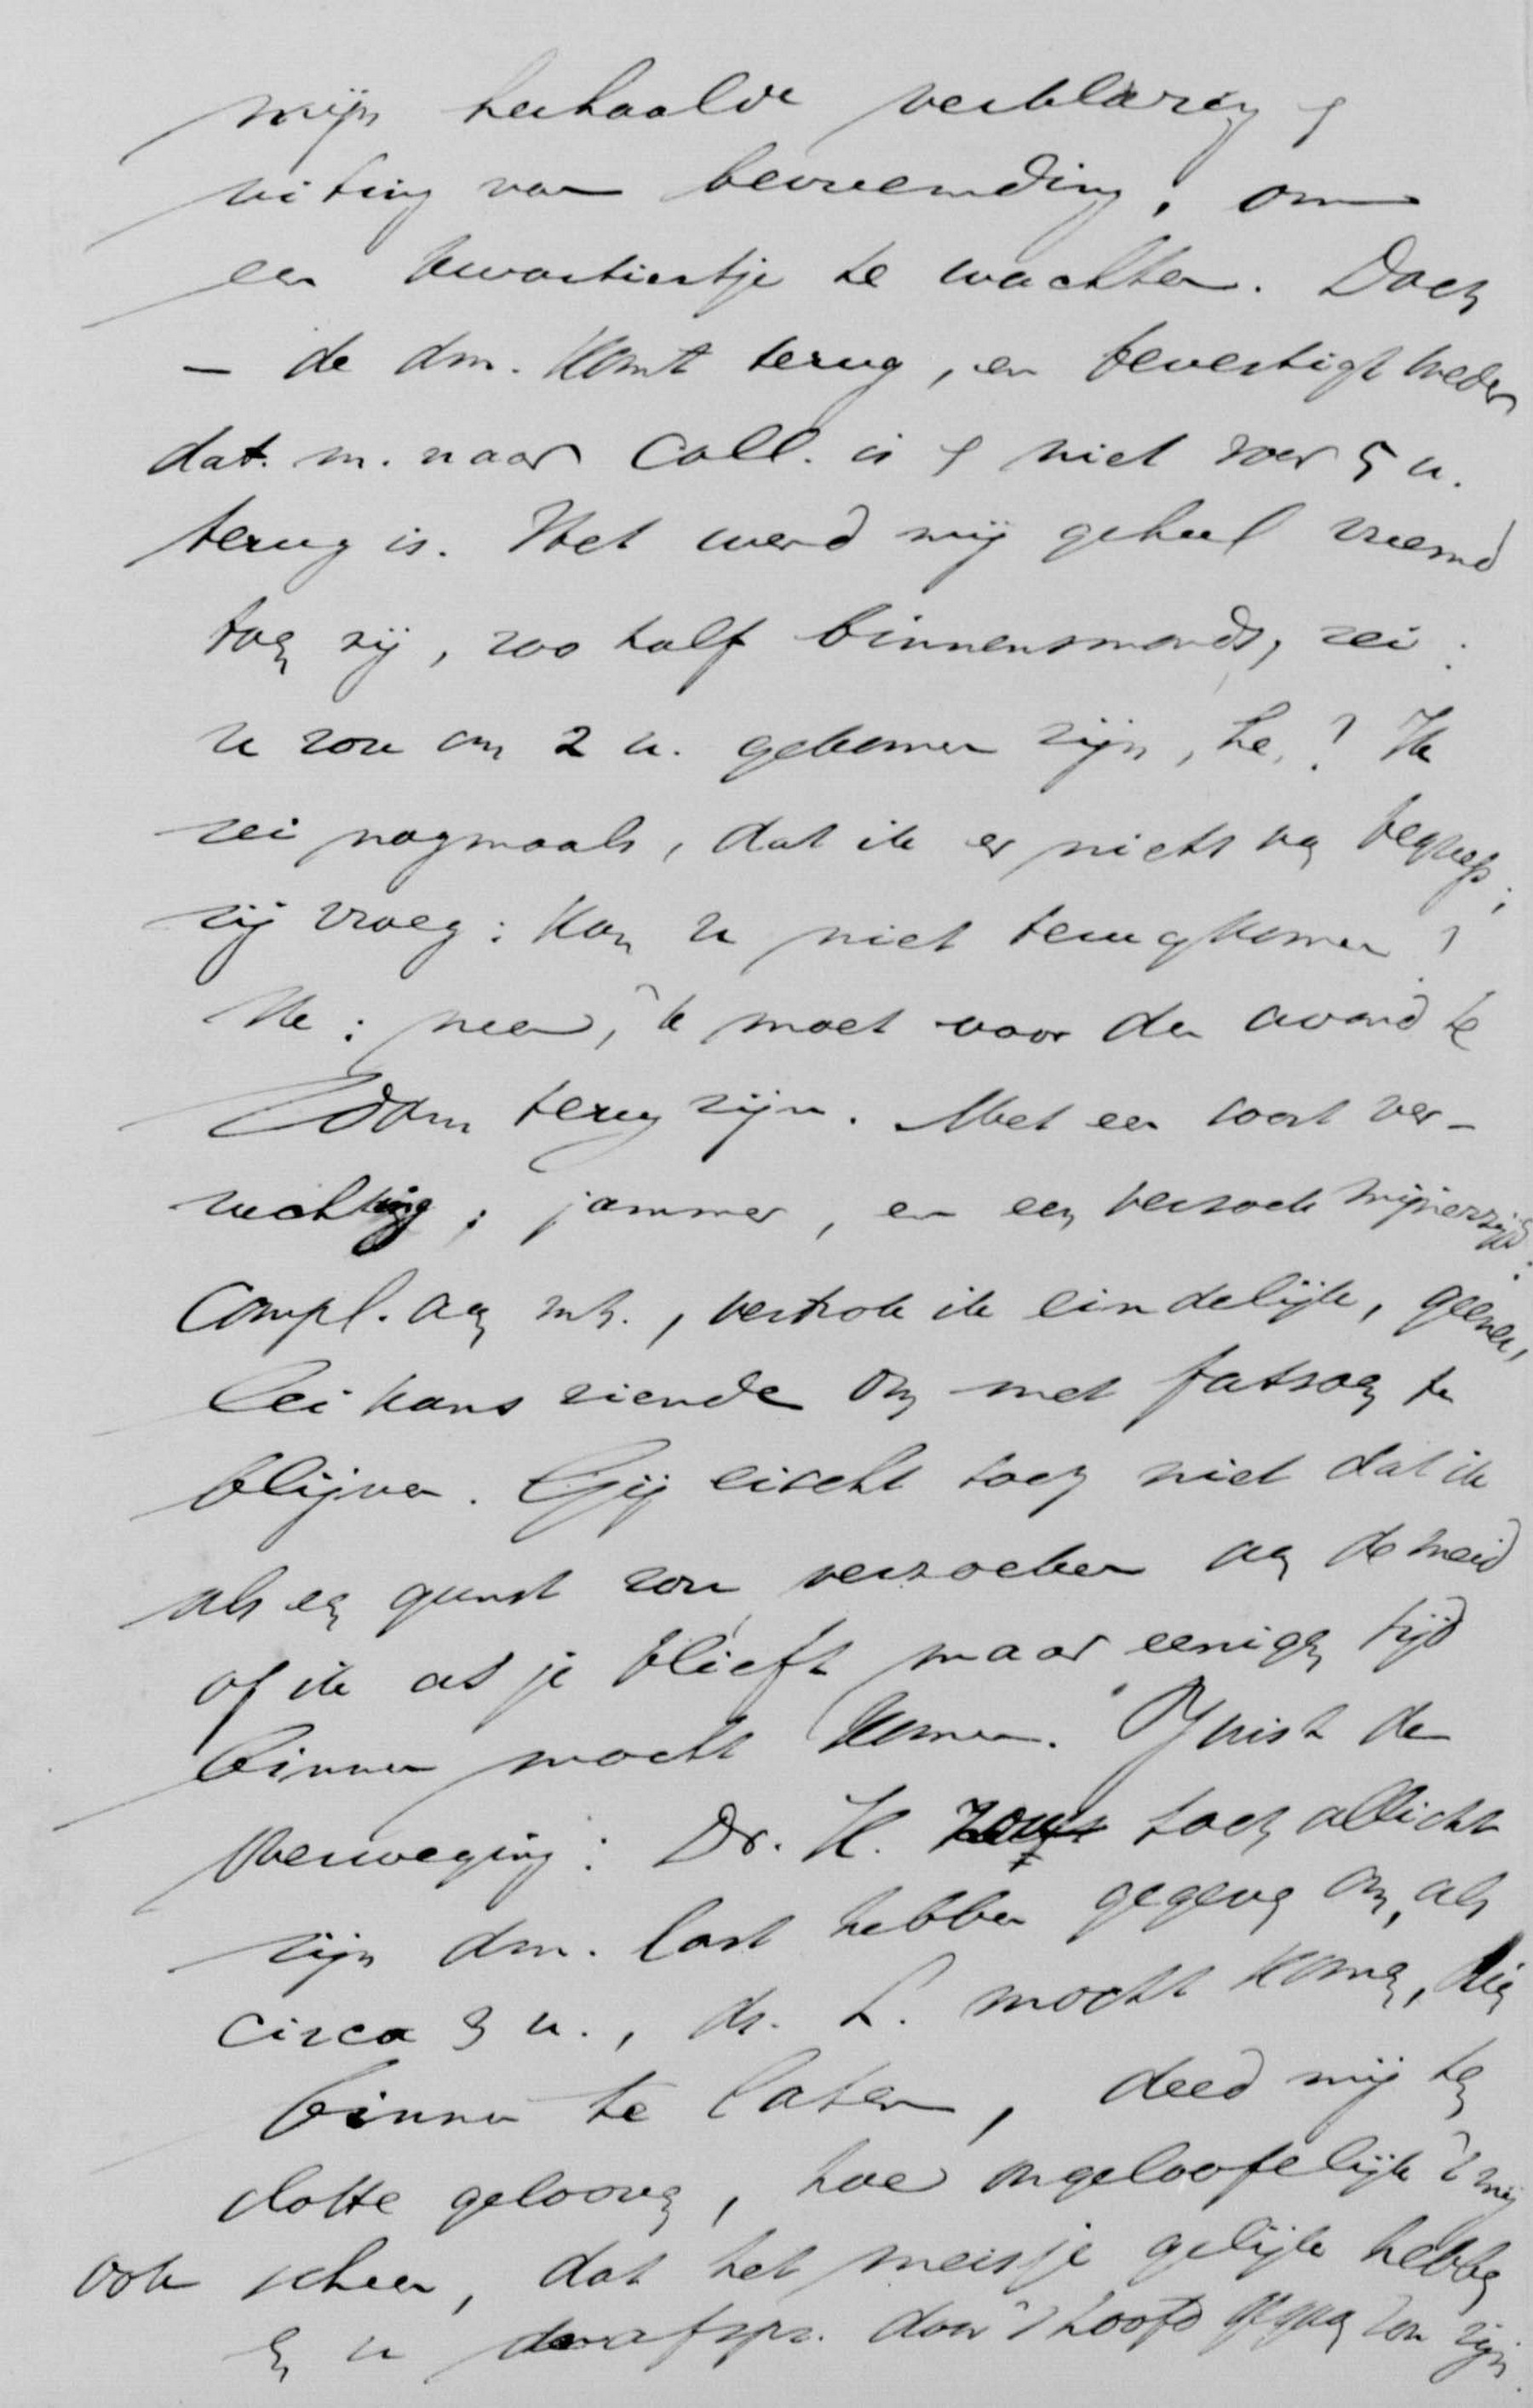 mijn herhaalde verklaring &
uiting van bevreemding, om
een kwartiertje te wachten. Doch
– de dm. komt terug, en bevestigt weder
dat m. naar coll. is & niet voor 5 u.
terug is. Het werd mij geheel vreemd
toen zij, zoo half binnensmonds, zei:
u zou om 2 u. gekomen zijn, he? Ik
zei nogmaals, dat ik er niets van begreep;
zij vroeg: kan u niet terugkomen?
Ik: neen, ik moet voor den avond te
Adam terug zijn. Met een soort ver-
zuchting: jammer, en een verzoek mijnerzijds:
Compl. aan mh., vertrok ik eindelijk, geener-
lei kans ziende om met fatsoen te
blijven. Gij eischt toch niet dat ik
als een gunst zou verzoeken aan de meid
of ik as je blieft maar eenigen tijd
binnen mocht komen. Juist de
overweging: Dr. K. zou toch allicht
zijn dm. last hebben gegeven om, als
circa 3 u., dr. L. mocht komen, dien
binnen te laten, deed mij ten
slotte gelooven, hoe ongeloofelijk 't mij
ook scheen, dat het meisje gelijk hebben
en u de afspr. door 't hoofd gegaan zou zijn.